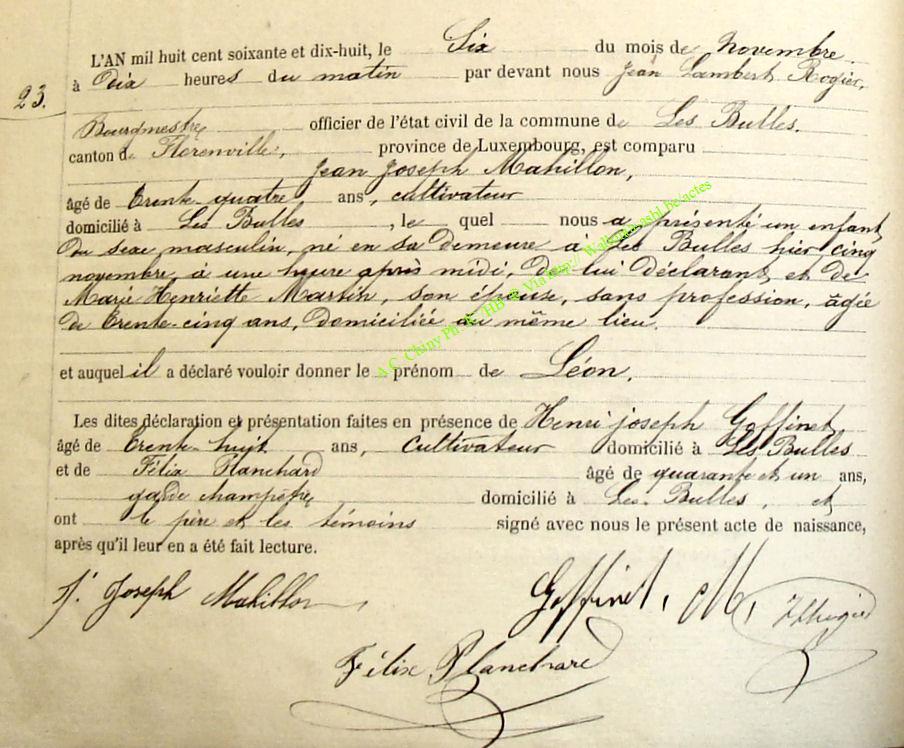 L'AN mil huit cent soixante et dix-huit, le Six du mois de novembre.
à Dix heures du matin par devant nous Jean Lambert Rogier,
23.
Bourgmestre officier de l'état civil de la commune de Les Bulles,
canton de Florenville, province de Luxembourg, est comparu
Jean Joseph Mahillon,
âgé de trente-quatre ans, cultivateur
domicilié à Les Bulles, le quel nous a présenté un enfant
du sexe masculin, né en sa demeure à Les Bulles hier cinq
novembre à une heure après midi, de lui déclarant, et de
Marie Henriette Martin, son épouse, sans profession, âgée
de trente-cinq ans, domiciliée au même lieu.
et auquel il a déclaré vouloir donner le prénom de Léon.
Les dites déclaration et présentation faites en présence de Henri joseph Goffinet
âgé de trente-huit ans, cultivateur domicilié à Les Bulles
et de Félix Planchard âgé de quarante et un ans,
garde champêtre domicilié à Les Bulles, et
ont le père et les témoins signé avec nous le présent acte de naissance,
après qu'il leur en a été fait lecture.
j. Joseph Mahillon Goffinet, M,
Félix Planchard
A.C. Chiny Ph. R. HB & Via http:// Wallonie